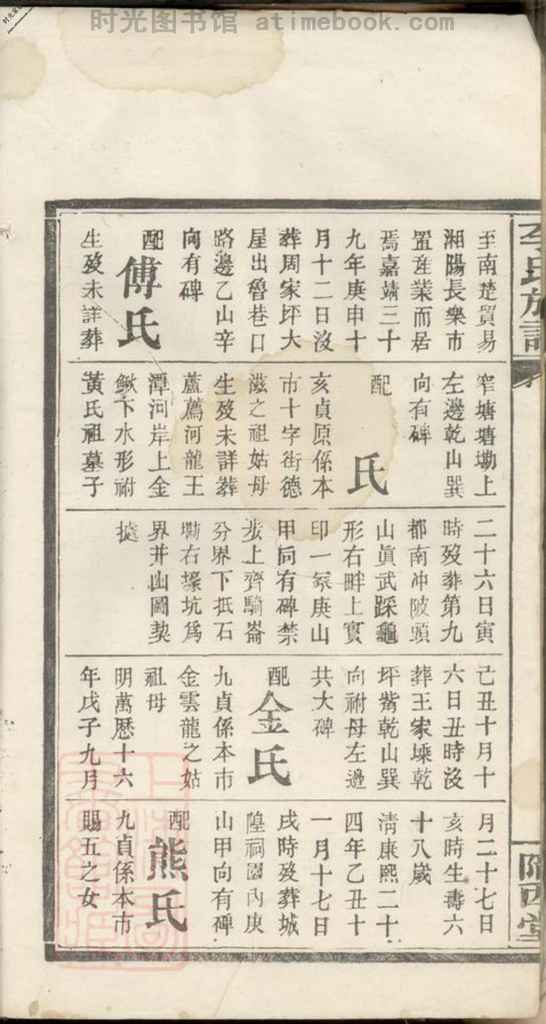 时光图书馆 atimebook.com
李氏族譜
隴西堂
至南楚貿易
湘陽長樂市
置産業而居
焉嘉靖三十
九年庚申十
月十二日沒
葬周家坪大
屋出魯巷口
路邊乙山辛
向有碑
配傅氏
生歿未詳葬
窄塘塘墈上
左邊乾山巽
向有碑
配 氏
亥貞原係本
市十字街德
滋之祖姑母
生歿未詳葬
蘆薦河龍王
潭河岸上金
鰍下水形祔
黃氏祖墓子
二十六日寅
時歿葬第九
都南冲陂頭
山眞武踩龜
形右畔上實
印一冢庚山
甲向有碑禁
步上齊騎崙
分界下抵石
墈右壕坑爲
界井凼圖契
㨗
己丑十月十
六日丑時沒
葬王家㙩乾
坪觜乾山巽
向祔母左邊
共大碑
配金氏
九貞係本市
金雲龍之姑
祖母
明萬厯十六
年戊子九月
月二十七日
亥時生壽六
十八歲
淸康熙二十
四年乙丑十
一月十七日
戌時歿葬城
隍祠園內庚
山甲向有碑
配熊氏
九貞係本市
賜五之女